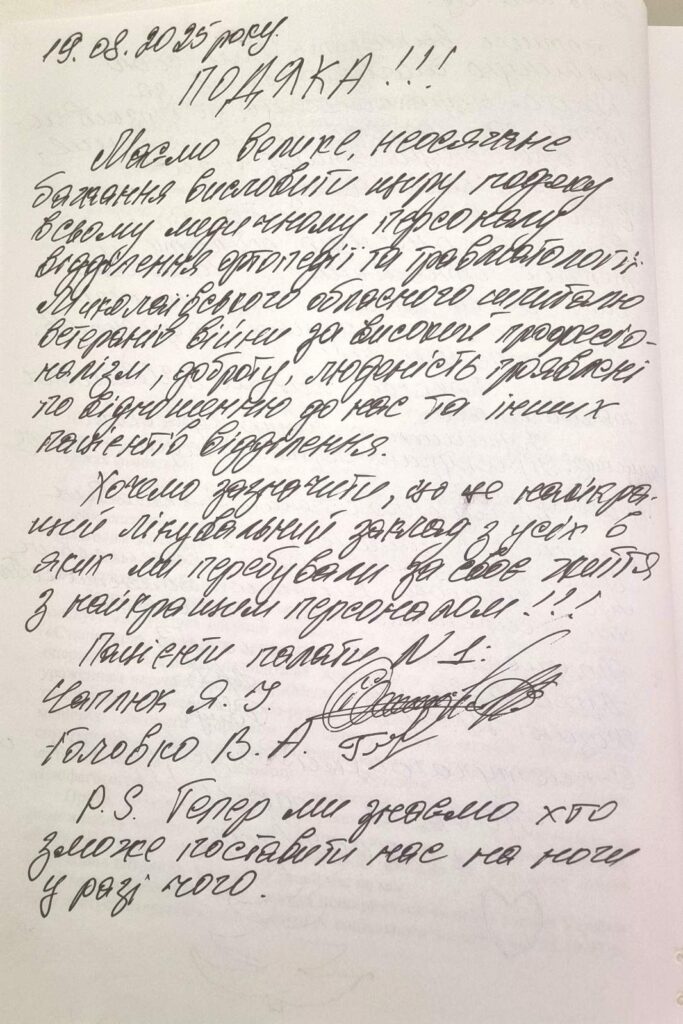 19.08.2025 року.
ПОДЯКА!!!
Маємо велике, неосяжне
бажання висловити щиру подяку
всьому медичному персоналу
відділення ортопедії та травматології
Миколаївського обласного шпиталю
ветеранів війни за високий професіо-
налізм, доброту, людяність проявлені
по відношенню до нас та інших
пацієнтів відділення.
Хочемо зазначити, що це найкра-
щий лікувальний заклад з усіх в
яких ми перебували за своє життя
з найкращим персоналом!!!
Пацієнти палати N 1:
Чаплюк Я. І.
Головко В. А.
P.S. Тепер ми знаємо хто
зможе поставити нас на ноги
у разі чого.